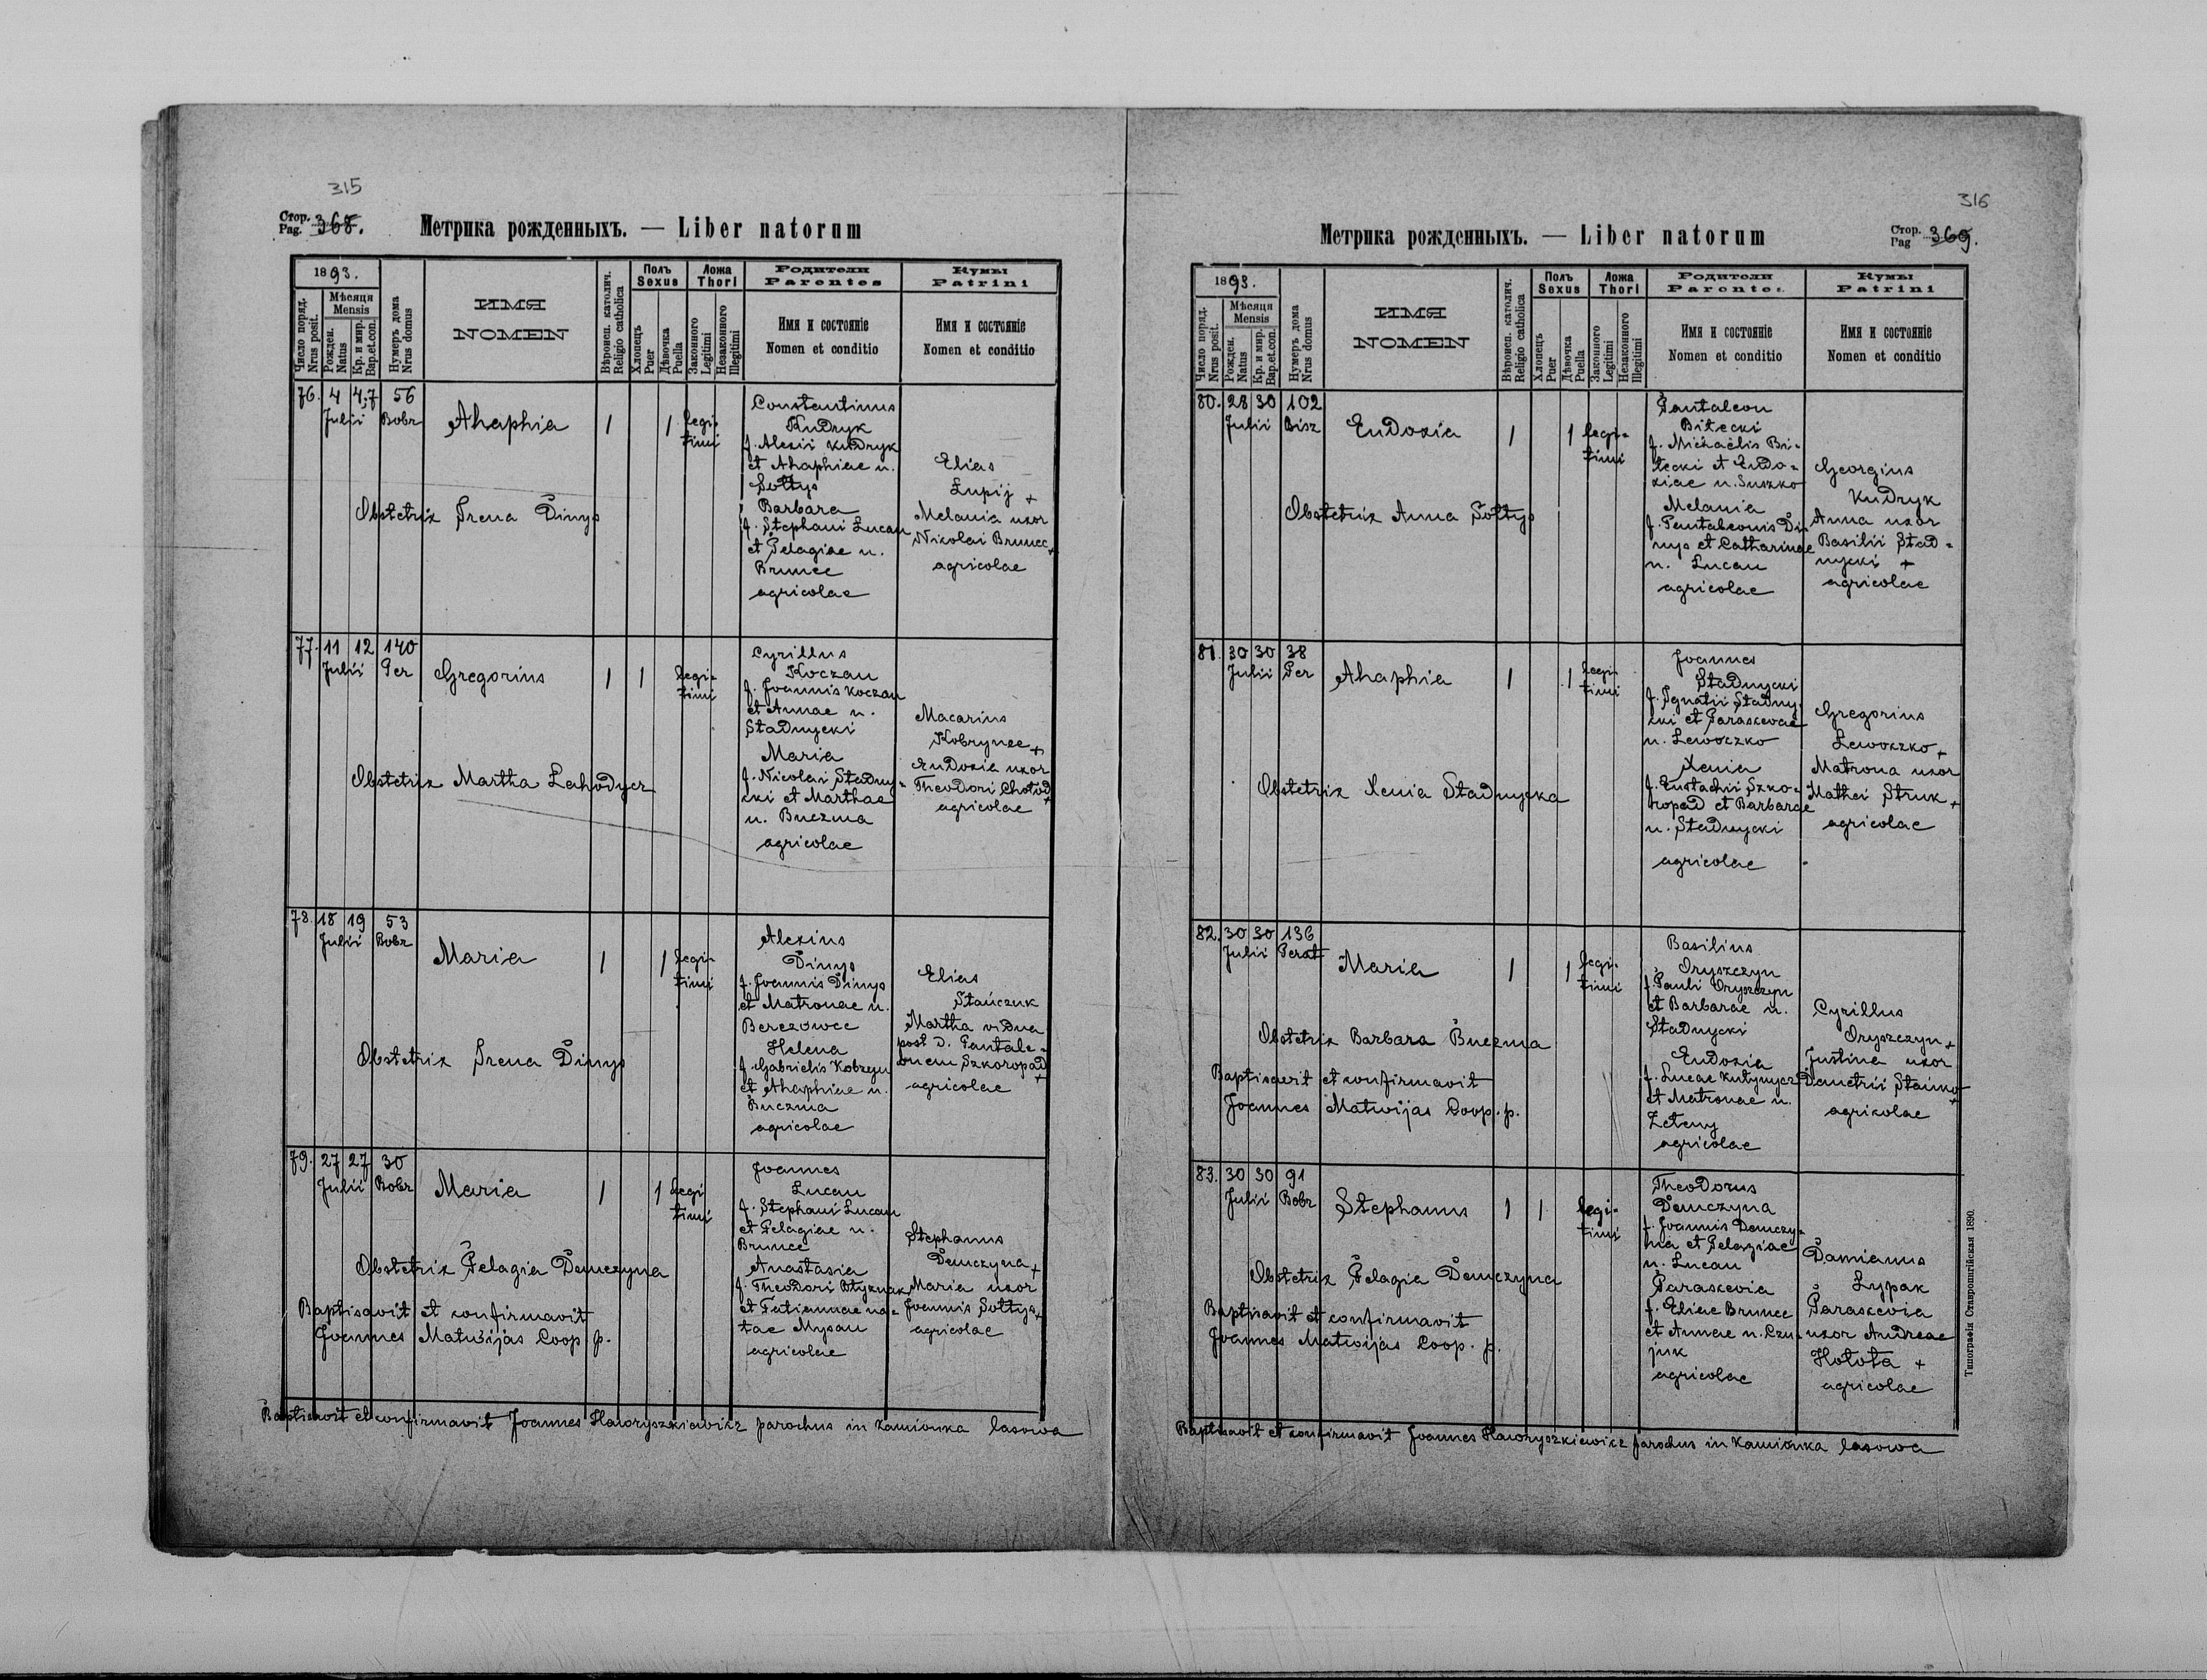 315
Стор. Pag. 368.
Метрика рожденныхъ. — Liber natorum
1893.
Число поряд. Nrus posit.
Мѣсяця Mensis
Рожден. Natus
Кр. и мир. Bap. et con.
Нумеръ дома Nrus domus
ИМЯ
NOMEN
Вѣроисп. католич. Religio catholica
Полъ Sexus
Хлопець Puer
Дѣвочка Puella
Ложа Thori
Законного Legitimi
Незаконного Illegitimi
Родители
Parentes
Имя и состояніе
Nomen et conditio
Кумы
Patrini
Имя и состояніе
Nomen et conditio
76. 4 4,7 56
Julii Bobr
Ahaphia 1 1 legi-
timi
Constantinus
Kudryk
f. Alexii Kudryk
et Ahaphiae n.
Sołtys
Barbara
f. Stephani Lucan
et Pelagiae n.
Brunec
agricolae
Elias
Łupij +
Melania uxor
Nicolai Brunec +
agricolae
Obstetrix Irena Dinys
77. 11 12 140
Julii Per
Gregorius 1 1 legi-
timi
Cyrillus
Koczan
f. Joannis Koczan
et Annae n.
Stadnycki
Maria
f. Nicolai Stadny-
cki et Marthae
n. Buczma
agricolae
Macarius
Kobrynec +
Eudoxia uxor
Theodori Chołod +
agricolae
Obstetrix Martha Lahodycz
78. 18 19 53
Julii Bobr
Maria 1 1 legi-
timi
Alexius
Dinys
f. Joannis Dinys
et Matronae n.
Berezowec
Helena
f. Gabrielis Kobryn
et Ahaphiae n.
Buczma
agricolae
Elias
Stańczuk
Martha vidua
post d. Pantale-
onem Szkoropad +
agricolae
Obstetrix Irena Dinys
79. 27 27 30
Julii Bobr
Maria 1 1 legi
timi
Joannes
Lucan
f. Stephani Lucan
et Pelagiae n.
Brunec
Anastasia
f. Theodori
et Tatiannae na-
tae Mysan
agricolae
Stephanus
Demczyna +
Maria uxor
Joannis Sołtys +
agricolae
Obstetrix Pelagia Demczyna
Baptisavit et confirmavit
Joannes Matwijas Coop. p.
Baptisavit et confirmavit Joannes Hawryszkiewicz parochus in Kamionka lasowa
316
Метрика рожденныхъ. — Liber natorum
Стор. Pag 369.
1893.
Число поряд. Nrus posit.
Мѣсяця Mensis
Рожден. Natus
Кр. и мир. Bap. et con.
Нумеръ дома Nrus domus
ИМЯ
NOMEN
Вѣроисп. католич. Religio catholica
Полъ Sexus
Хлопець Puer
Дѣвочка Puella
Ложа Thori
Законного Legitimi
Незаконного Illegitimi
Родители
Parentes
Имя и состояніе
Nomen et conditio
Кумы
Patrini
Имя и состояніе
Nomen et conditio
80. 28 30 102
Julii Bisz
Eudoxia 1 1 legi-
timi
Pantaleon
Bitecki
f. Michaelis Bi-
tecki et Eudo-
xiae n. Suszko
Melania
f. Pantaleonis Di-
nys et Catharinae
n. Lucan
agricolae
Georgius
Kudryk
Anna uxor
Basilii Stad-
nycki +
agricolae
Obstetrix Anna Sołtys
81. 30 30 38
Julii Per
Ahaphia 1 1 legi-
timi
Joannes
Stadnycki
f. Ignatii Stadny-
cki et Parascevae
n. Lewoczko
Xenia
f. Eustachii Szko-
ropad et Barbarae
n. Stadnycki
agricolae
Gregorius
Lewoczko +
Matrona uxor
Mathei Struk +
agricolae
Obstetrix Xenia Stadnycka
82. 30 30 136
Julii Perat
Maria 1 1 legi-
timi
Basilius
Oryszczyn
f. Pauli Oryszczyn
et Barbarae n.
Stadnycki
Eudoxia
f. Lucae
et Matronae n.
Zeteny
agricolae
Cyrillus
Oryszczyn +
Justina uxor
Demetrii
agricolae
Obstetrix Barbara Buczma
Baptisavit et confirmavit
Joannes Matwijas Coop. p.
83. 30 30 91
Julii Bobr
Stephanus 1 1 legi-
timi
Theodorus
Demczyna
f. Joannis Demczy-
na et Pelagiae
n. Lucan
Parascevia
f. Eliae Brunec
et Annae n. Czu-
juk
agricolae
Damianus
Łypak
Parascevia
uxor Andreae
Hołota +
agricolae
Obstetrix Pelagia Demczyna
Baptisavit et confirmavit
Joannes Matwijas Coop. p.
Baptisavit et confirmavit Joannes Hawryszkiewicz parochus in Kamionka lasowa
Типографія Ставропигійская 1890.